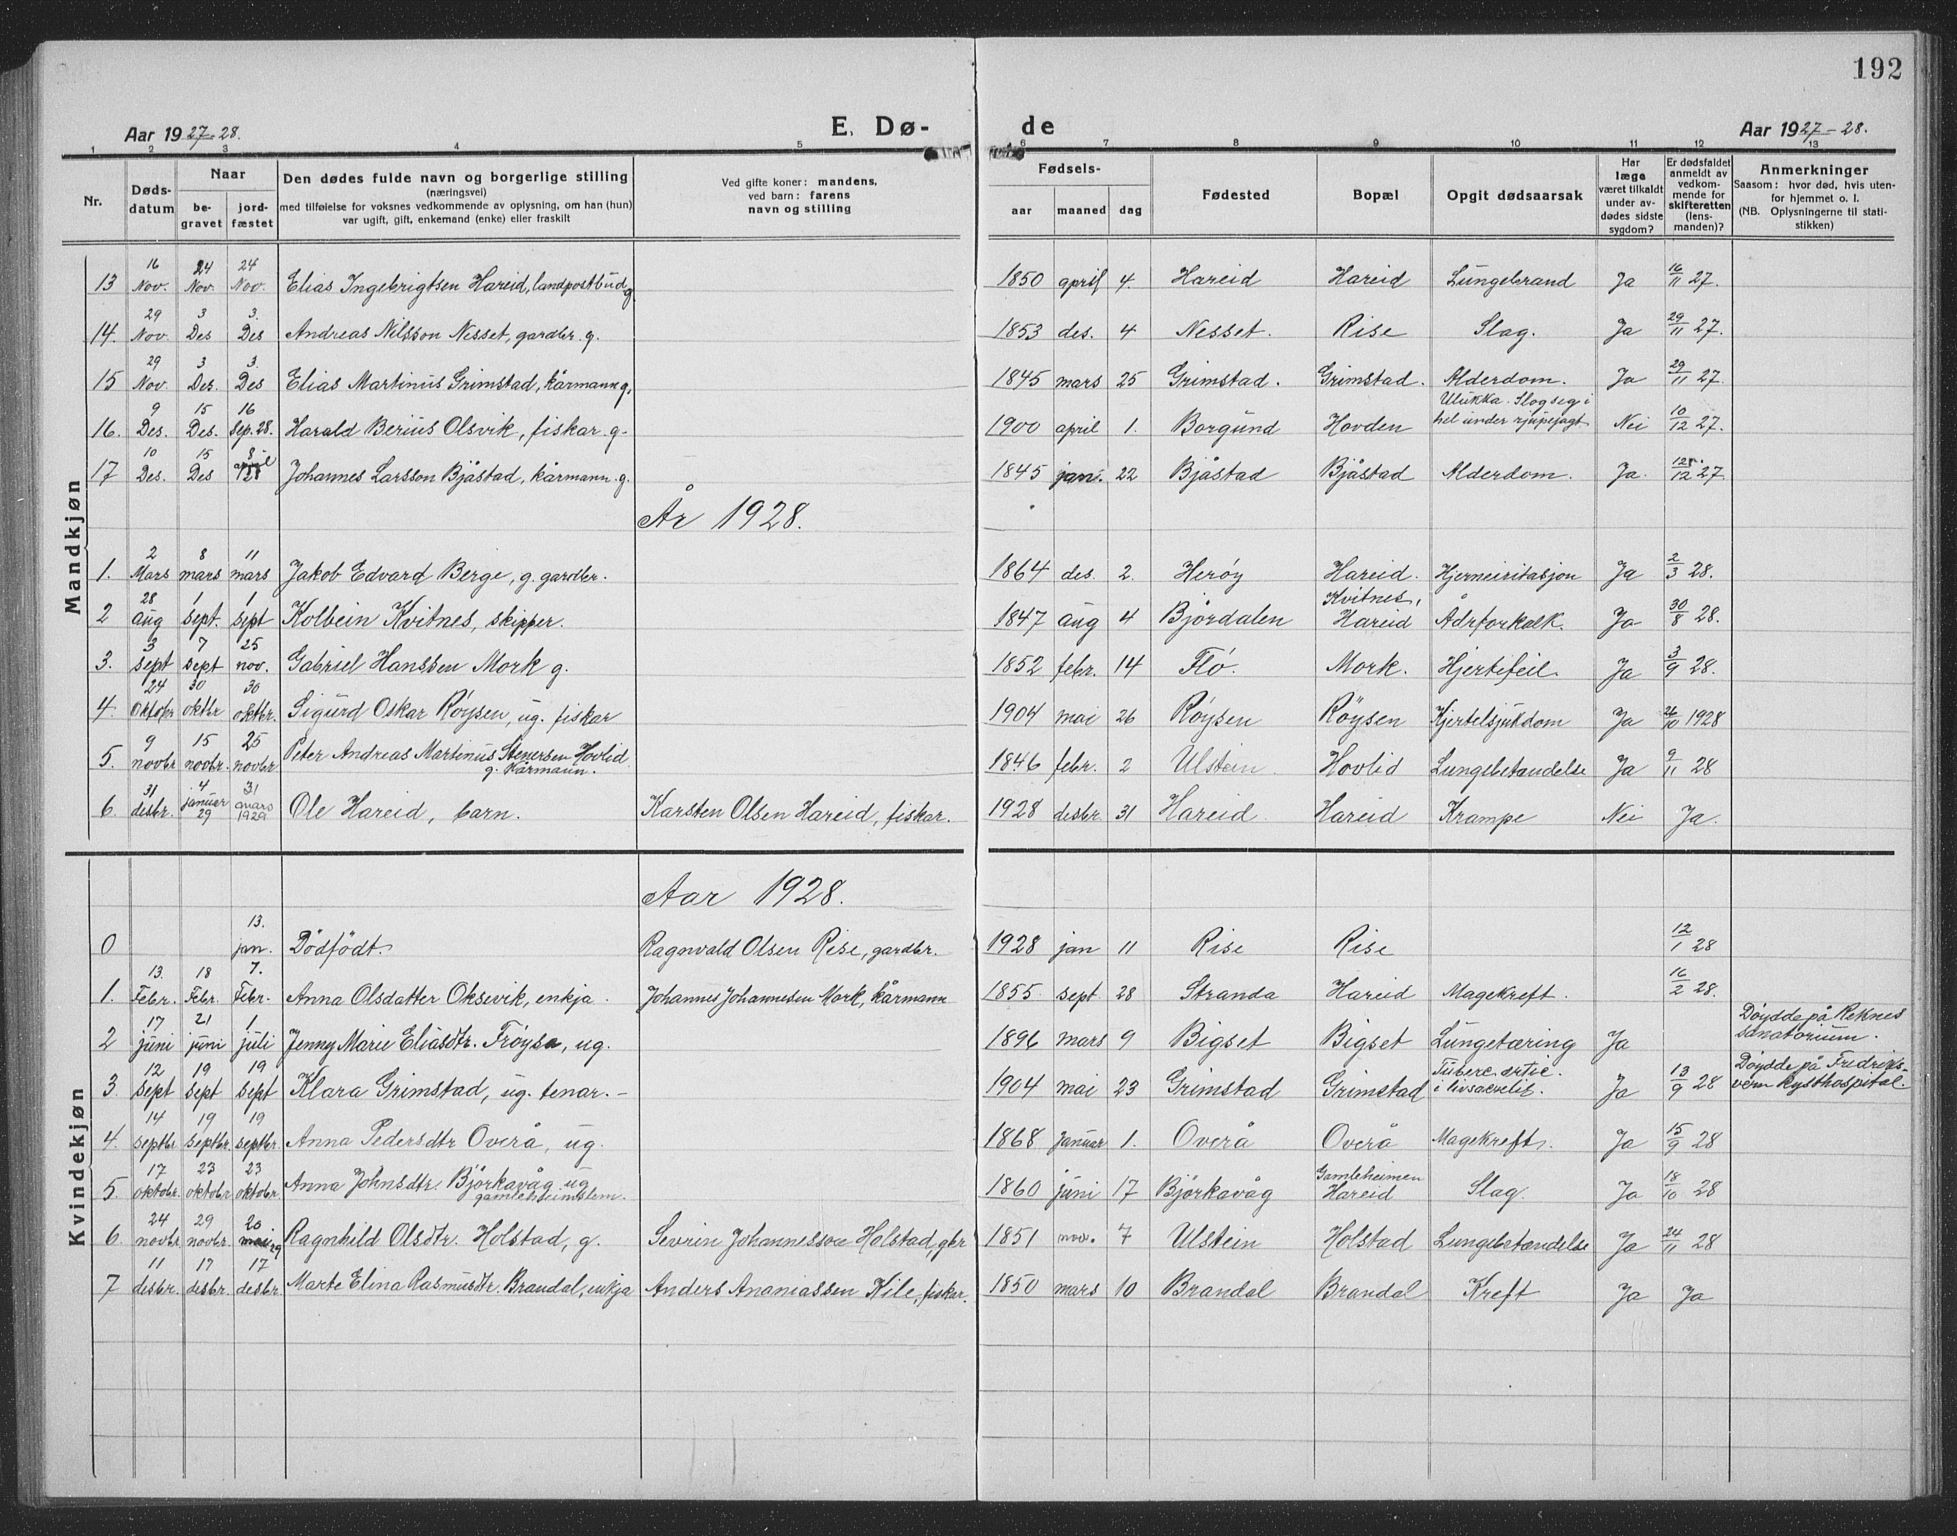 192
Aar 1927-28. E. Dø- de Aar 1927-28.
1 2 3 4 5 6 7 8 9 10 11 12 13
Nr.
Døds-
datum
Naar
be-
gravet
jord-
fæstet
Den dødes fulde navn og borgerlige stilling
(næringsvei)
med tilføielse for voksnes vedkommende av oplysning, om han (hun)
var ugift, gift, enkemand (enke) eller fraskilt
Ved gifte koner: mandens,
ved barn: farens
navn og stilling
Fødsels-
aar maaned dag
Fødested
Bopæl
Opgit dødsaarsak
Har
læge
været tilkaldt
under av-
dødes sidste
sygdom?
Er dødsfaldet
anmeldt av
vedkom-
mende for
skifteretten
(lens-
manden)?
Anmerkninger
Saasom: hvor død, hvis uten-
for hjemmet o. l.
(NB. Oplysningerne til stati-
stikken)
Mandkjøn
13 16 Nov. 24 Nov. 24 Nov. Elias Ingebrigtsen Hareid, landpostbud g. 1850 april 4. Hareid Hareid Lungebrand Ja 16/11 27.
14. 29 Nov. 3 Des 3. Des Andreas Nilsson Nesset, gardbr. g. 1853 des. 4 Nesset. Rise Slag. Ja 29/11 27.
15 29 Nov. 3 Des. 3. Des Elias Martinus Grimstad, kårmann g. 1845 mars 25 Grimstad. Grimstad. Alderdom. Ja 29/11 27.
16. 9 Des. 15 Des. 16 Sep. 28. Harald Berius Olsvik, fiskar. g. 1900 april 1. Borgund Hovden Ulukka. Slog seg i
hel under rjupejagt Nei 10/12 27.
17 10 Des. 15 Des 8 april 128 Johannes Larsson Bjåstad, kårmann. g. 1845 jan. 22 Bjåstad Bjåstad Alderdom. Ja. 12/12 27.
År 1928.
1. 2 Mars 8 mars 11 mars Jakob Edvard Berge, g. gardbr. 1864 des. 2. Herøy Hareid. Hjerneiritasjon Ja 2/3 28.
2 28 aug 1 sept. 1 sept Kolbein Kvitnes, skipper. 1847 aug 4 Bjørdalen Kvitnes,
Hareid Ådrforkalk. Ja 30/8 28.
3. 3 sept 7 sept 25 nov. Gabriel Hanssen Mork g. 1852 febr. 14 Flø. Mork. Hjertefeil. Ja 3/9 28.
4. 24 Oktobr 30 oktbr 30 oktbr. Sigurd Oskar Røysen, ug. fiskar 1904 mai 26 Røysen Röysen Kjertelsjukdom Ja 26/10 1928
5. 9 novbr 15 novbr. 25 novbr Peter Andreas Martinus Stenersen Hovlid
g. kårmann. 1846 febr. 2 Ulstein. Hovlid Lungebetandelse Ja 9/11 28
6. 31 desbr. 4 januar 29 31 mars 1929 Ole Hareid, barn. Karsten Olsen Hareid, fiskar. 1928 desbr 31 Hareid. Hareid Krampe Nei Ja.
Kvindekjøn
Aar 1928.
0 13. jan. Dödfödt. Ragnvald Olsen Rise, gardbr. 1928 jan 11 Rise Rise 12/1 28
1. 13. Febr. 18 Febr. 7. Febr. Anna Olsdatter Oksevik, enkja. Johannes Johannesen Mork, kårmann 1855 sept 28 Stranda Hareid Magekreft. 16/2 28.
2 17 juni 21 juni 1 juli Jenny Marie Eliasdtr. Frøysa, ug. 1896 mars 9 Bigset Bigset Lungetæring Ja Døydde på Reknes
sanatorium.
3. 12 Sept 19 Sept 19 sept Klara Grimstad, ug. tenar. - 1904 mai 23 Grimstad Grimstad Tuberc. Ja 13/9 28 Døydde på Fredriks-
vern kysthospital.
4. 14 septbr 19 septbr. 19 septbr. Anna Pedersdtr Overå, ug. 1868 januar 1. Overå Overå Magekreft. Ja 15/9 28
5. 17 oktobr. 23 oktobr 23 oktobr Anna Johnsdtr. Björkavåg ug
gamleheimslem. 1860 juni 17 Björkavåg Gamleheimen
Hareid Slag. Ja 18/10 28
6. 24 novbr 29 novbr. 20 mai 29 Ragnhild Olsdtr. Holstad, g. Sevrin Johannesson Holstad, gbr 1851 nov. 7 Ulstein Holstad Lungebetandelse Ja 24/11 28
7 11 desbr. 17 desbr. 17 desbr Marte Elina Rasmusdtr. Brandal, enkja Anders Ananiassen Kile, fiskar. 1850 mars 10 Brandal Brandal Kreft Ja Ja